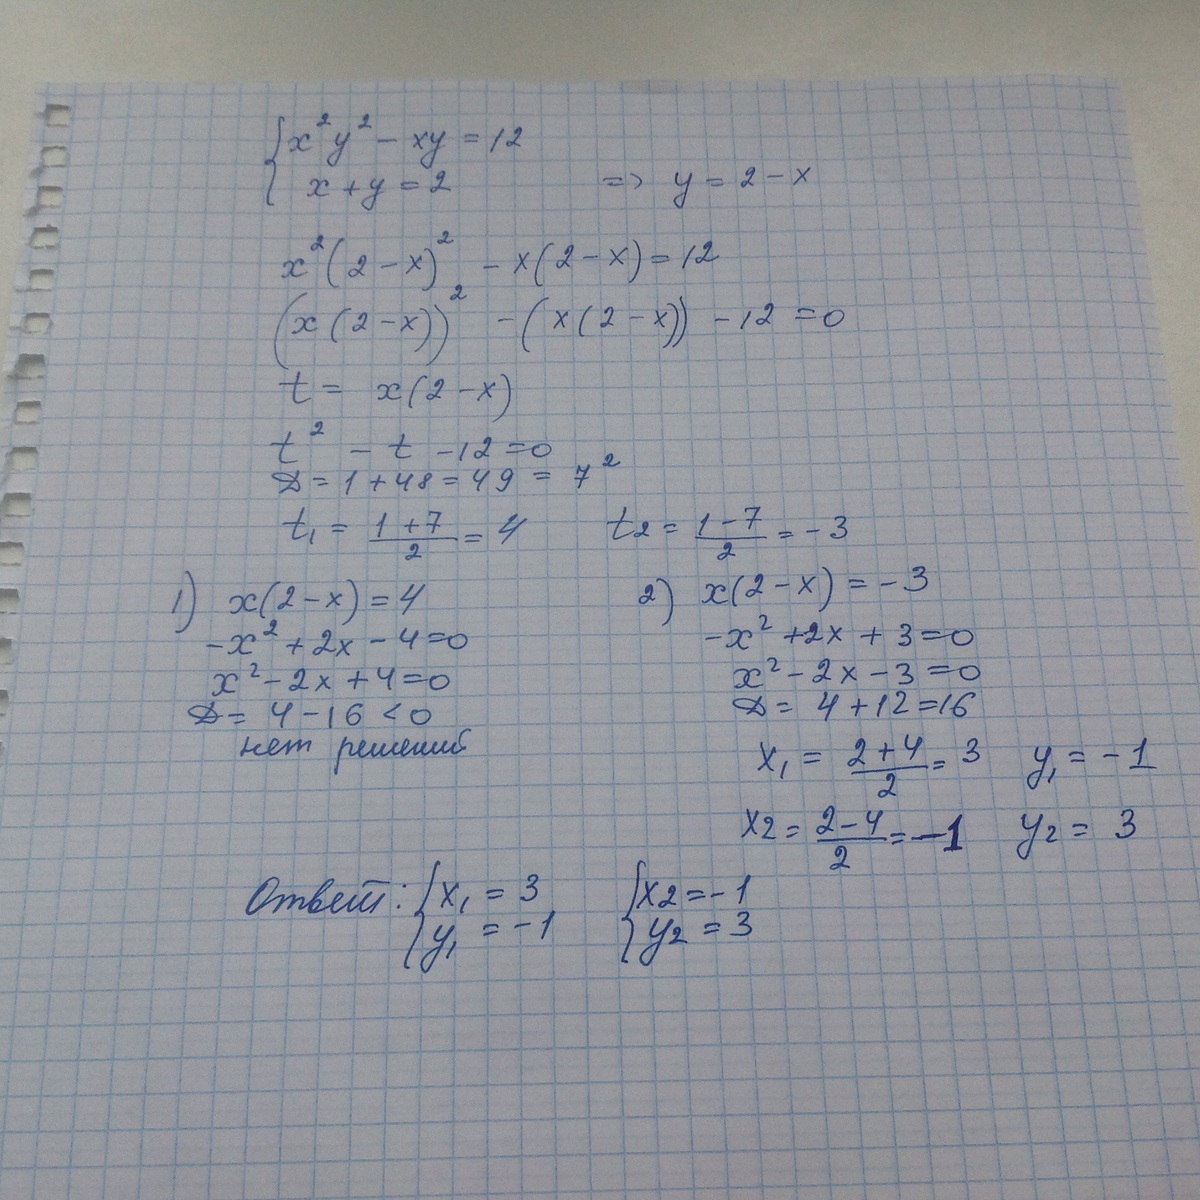 {x² y² - xy = 12
x + y = 2 => y = 2 - x
x² (2 - x)² - x(2 - x) = 12
(x (2 - x))² - (x (2 - x)) - 12 = 0
t = x(2 - x)
t² - t - 12 = 0
D = 1 + 48 = 49 = 7²
t₁ = (1 + 7)/2 = 4 t₂ = (1 - 7)/2 = - 3
1) x(2 - x) = 4
-x² + 2x - 4 = 0
x² - 2x + 4 = 0
D = 4 - 16 < 0
нет решений
2) x(2 - x) = - 3
-x² + 2x + 3 = 0
x² - 2x - 3 = 0
D = 4 + 12 = 16
x₁ = (2 + 4)/2 = 3 y₁ = - 1
x₂ = (2 - 4)/2 = - 1 y₂ = 3
Ответ: {x₁ = 3 {x₂ = - 1
y₁ = - 1 y₂ = 3